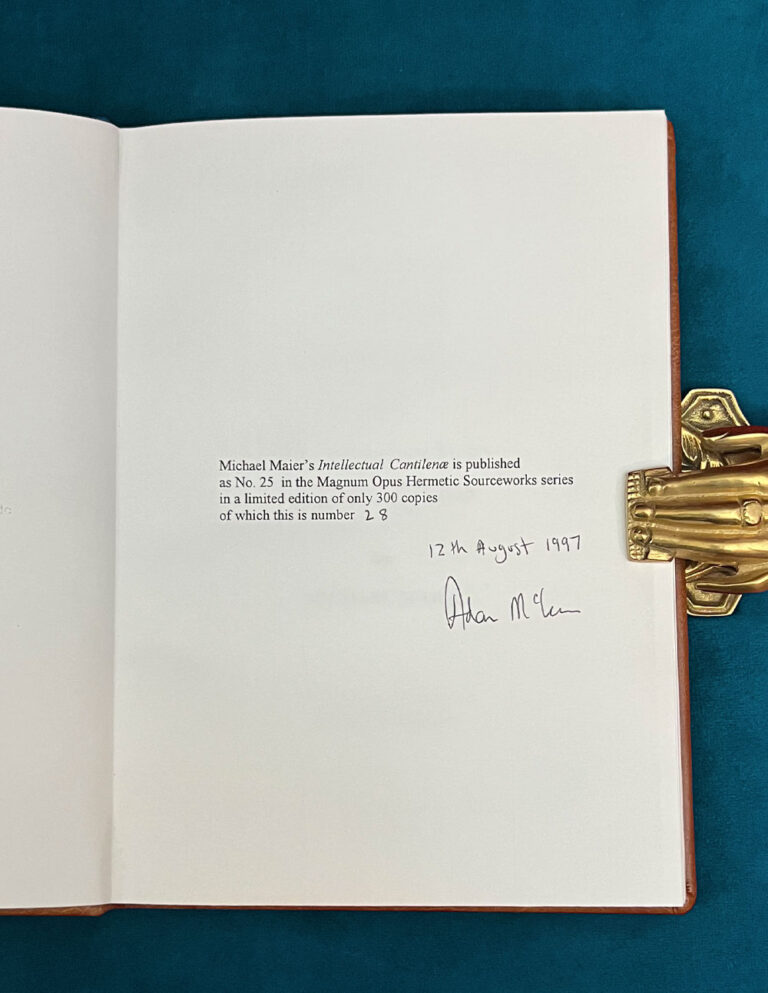 Michael Maier's Intellectual Cantilenæ is published
as No. 25 in the Magnum Opus Hermetic Sourceworks series
in a limited edition of only 300 copies
of which this is number 28
12th August 1997
Adam McLean